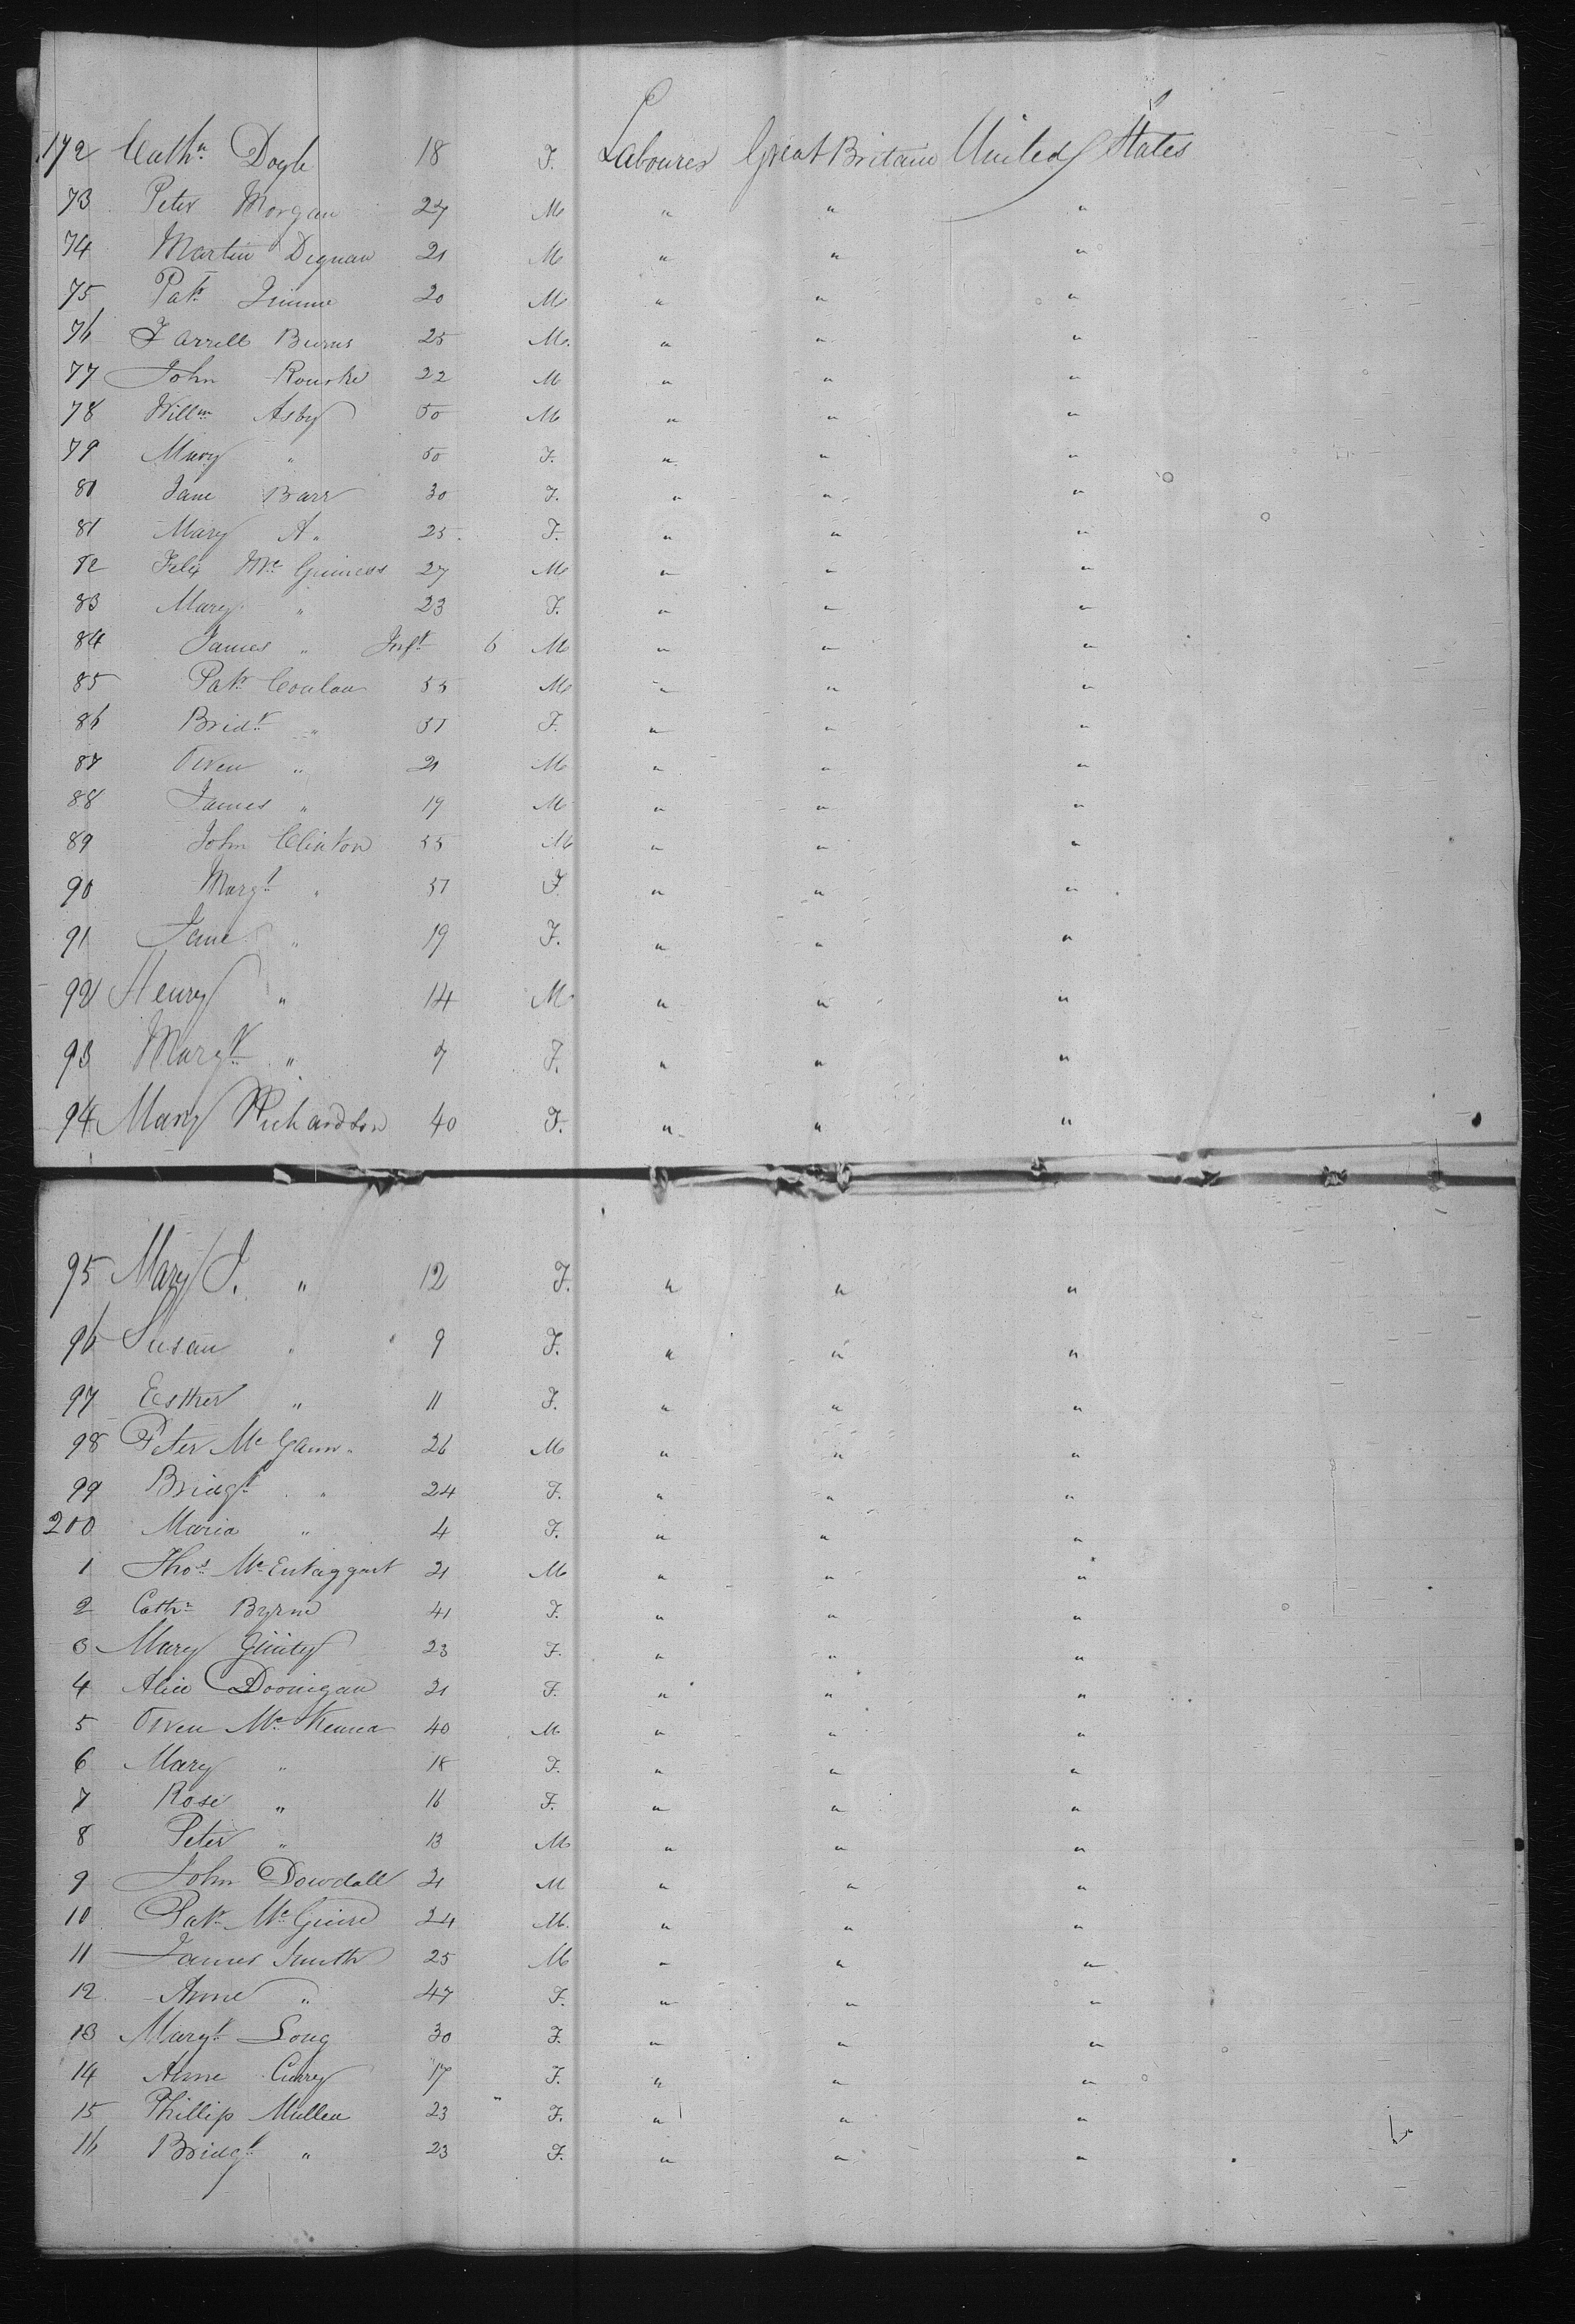 172 Cathn Doyle 18 F. Labourer Great Britain United States
73 Peter Morgan 27 M " " "
74 Martin Dignan 21 M " " "
75 Patk 20 M " " "
76 Farrell Burns 25 M. " " "
77 John Rourke 22 M " " "
78 Willm Asby 50 M " " "
79 Mary " 50 F. " " "
80 Jane Barr 30 F. " " "
81 Mary A " 25 F. " " "
82 Felix Mc Guiness 27 M " " "
83 Mary " 23 F. " " "
84 James " Inft 6 M " " "
85 Patk Conlan 55 M " " "
86 Bridt " 51 F. " " "
87 Owen " 21 M " " "
88 James " 19 M " " "
89 John Clinton 55 M " " "
90 Margt " 51 F. " " "
91 Jane " 19 F. " " "
92 Henry " 14 M " " "
93 Margt " 7 F. " " "
94 Mary Richardson 40 F. " " "
95 Mary J. " 12 F. " " "
96 Susan " 9 F. " " "
97 Esther " 11 F. " " "
98 Peter Mc Gann 26 M " " "
99 Bridgt " 24 F. " " "
200 Maria " 4 F. " " "
1 Thos Mc Entaggart 21 M " " "
2 Cathn Byrne 41 F. " " "
3 Mary Ginity 23 F. " " "
4 Alice Doonigan 21 F. " " "
5 Owen Mc Kenna 40 M " " "
6 Mary " 18 F. " " "
7 Rose " 16 F. " " "
8 Peter " 13 M " " "
9 John Dowdall 21 M " " "
10 Patk Mc Guire 24 M. " " "
11 James Smith 25 M " " "
12 Anne " 47 F. " " "
13 Margt Long 30 F. " " "
14 Anne Curry 17 F. " " "
15 Phillip Mullen 23 F. " " "
16 Bridgt " 23 F. " " "